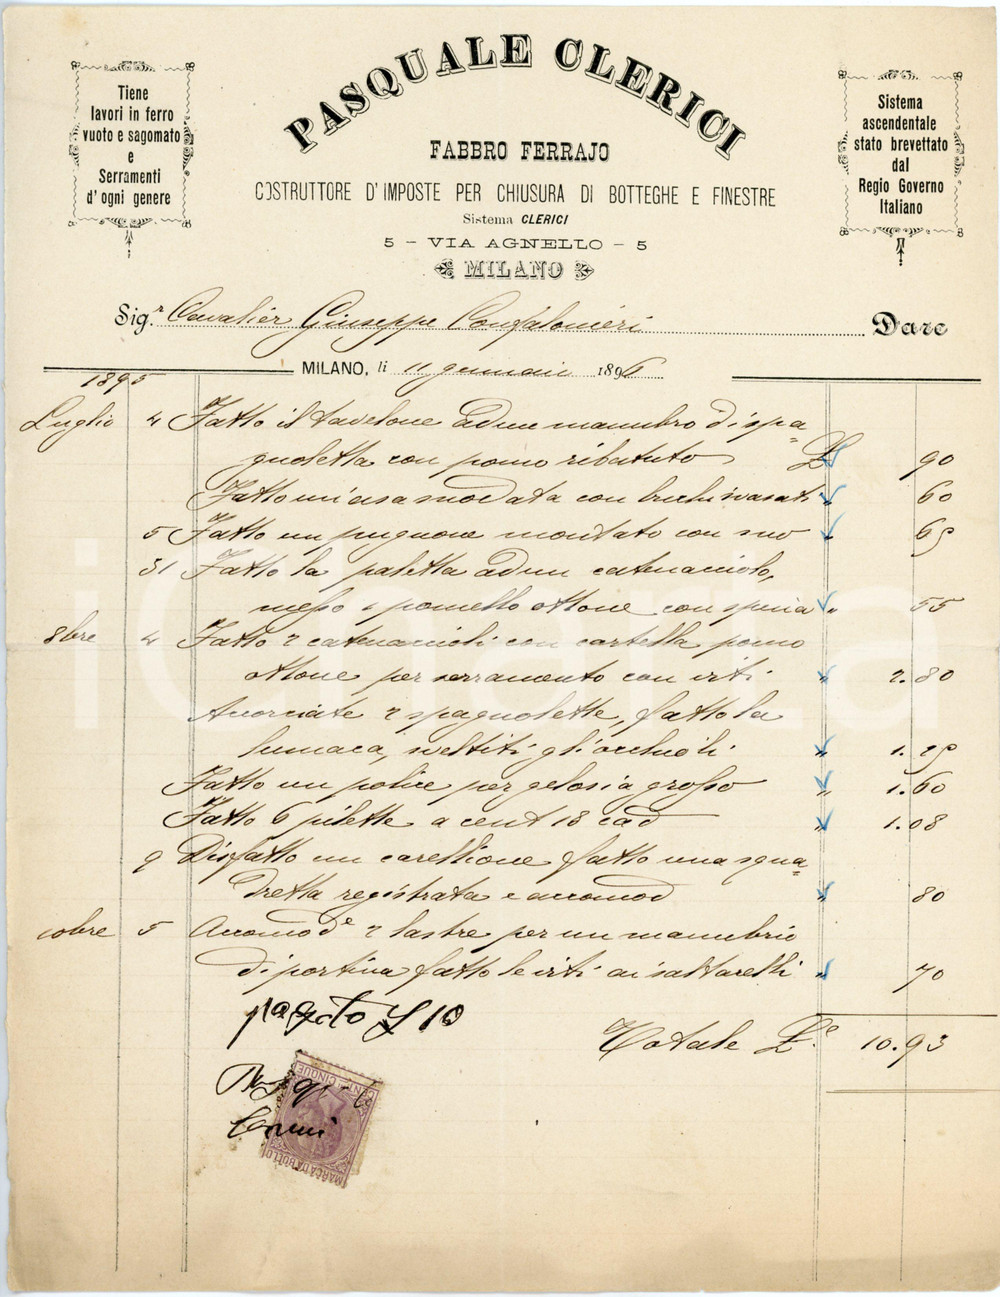 PASQUALE CLERICI
Tiene
lavori in ferro
vuoto e sagomato
e
Serramenti
d'ogni genere
Sistema
ascendentale
stato brevettato
dal
Regio Governo
Italiano
FABBRO FERRAJO
COSTRUTTORE D'IMPOSTE PER CHIUSURA DI BOTTEGHE E FINESTRE
Sistema CLERICI
5 - VIA AGNELLO - 5
MILANO
Sig.r Cavalier Giuseppe Confalonieri Dare
MILANO, li 11 gennaio 1896
1895
Luglio 4 Fatto il tavelone ad un manubro di spa=
gnoletta con pomo ribututo L. 90
Fatto un'asa modata con buchi " 60
5 Fatto un pugnone montato con " 65
31 Fatto la paletta ad un catenacciolo,
messo 1 pomello ottone con " 55
8bre 4 Fatto 2 catenaccioli con cartella pomo
ottone per serramento con viti " 2.80
Accorciate 2 spagnolette, fatto la
lumaca, gli occhioli " 1.25
Fatto un police per gelosia grosso " 1.60
Fatto 6 pilette a cent 18 cad " 1.08
9 Disfatto un carettione fatto una squa=
dretta registrata e accomod " 80
10bre 5 Accomode 2 lastre per un manubrio
di portina fatto le viti ai saltarelli " 70
pagato L 10
Totale L. 10.93
CENT. CINQUE
MARCA DA BOLLO
iCharta